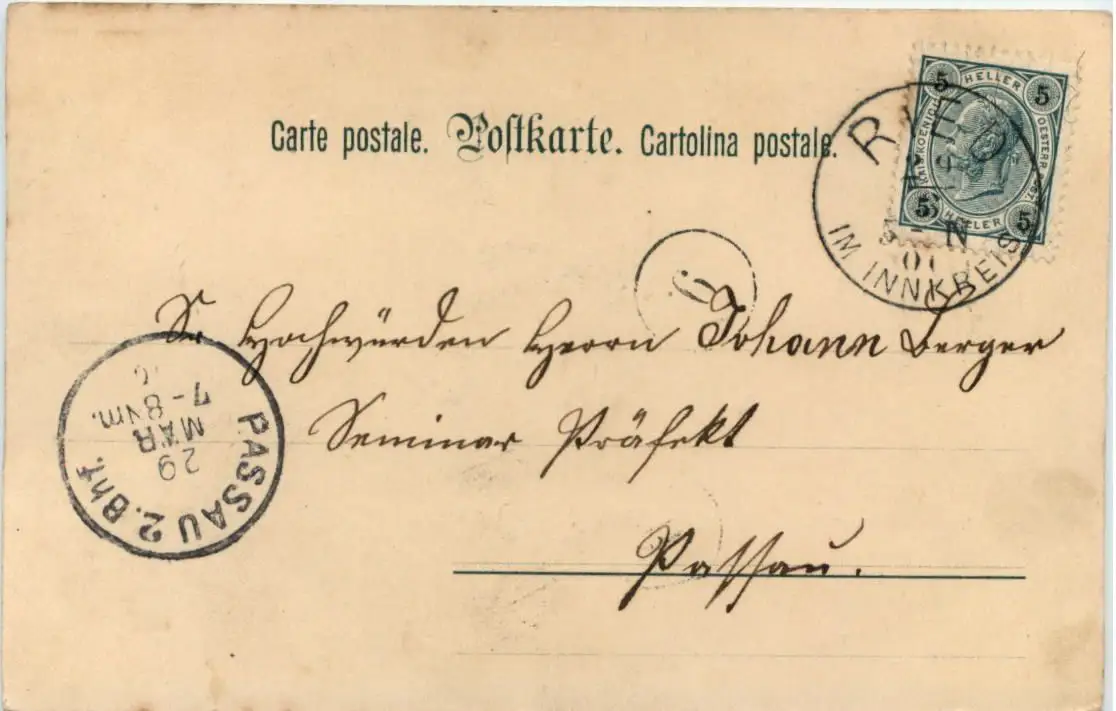 Carte postale. Postkarte. Cartolina postale.
5 HELLER 5
KAIS. KOENIGL. OESTERR.
5 HELLER 5
RIED
IM INNKREIS
N
01
6
Sr Hochwürden Herrn Johann Berger
Seminar Präfekt
Passau.
PASSAU 2. Bhf.
29
MÄR
7-8 Nm.